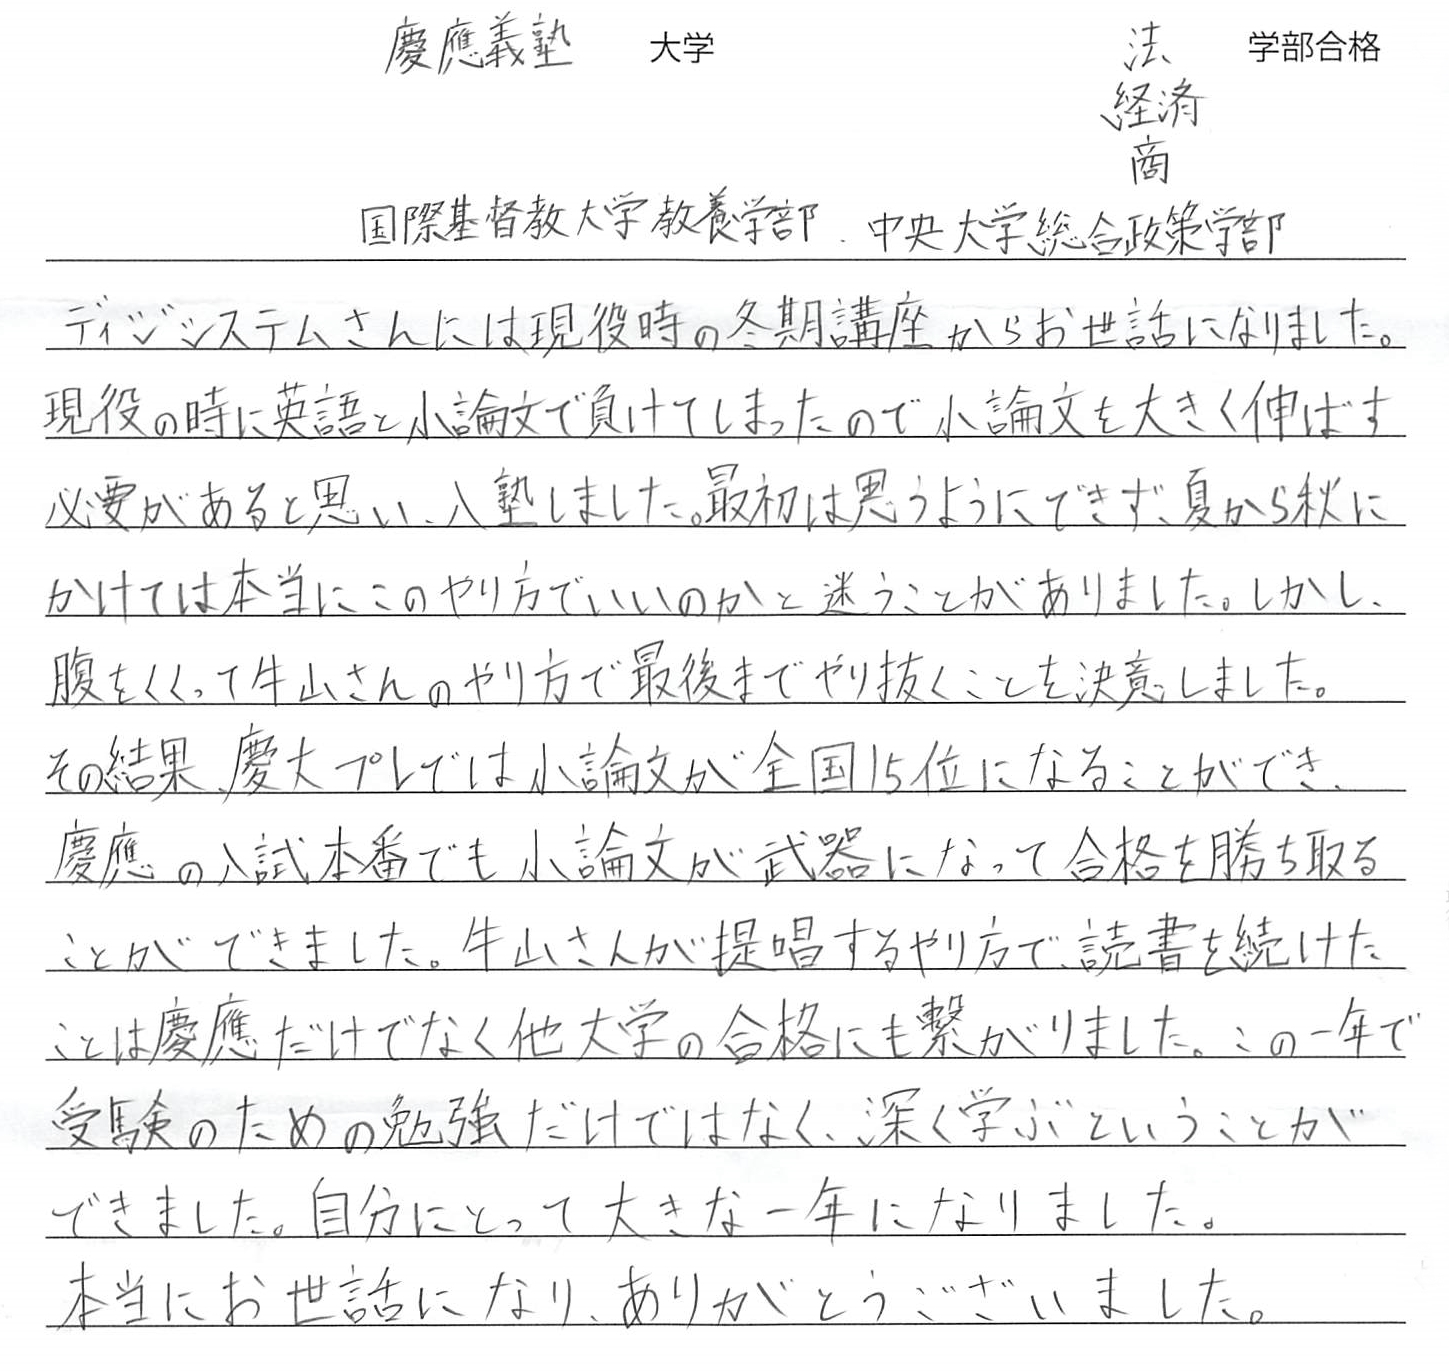 慶應義塾 大学 法 学部合格
経済
商
国際基督教大学教養学部、中央大学総合政策学部
ディジシステムさんには現役時の冬期講座からお世話になりました。
現役の時に英語と小論文で負けてしまったので小論文を大きく伸ばす
必要があると思い、入塾しました。最初は思うようにできず、夏から秋に
かけては本当にこのやり方でいいのかと迷うことがありました。しかし、
腹をくくって牛山さんのやり方で最後までやり抜くことを決意しました。
その結果、慶大プレでは小論文が全国15位になることができ、
慶應の入試本番でも小論文が武器になって合格を勝ち取る
ことができました。牛山さんが提唱するやり方で、読書を続けた
ことは慶應だけでなく他大学の合格にも繋がりました。この一年で
受験のための勉強だけではなく、深く学ぶということが
できました。自分にとって大きな一年になりました。
本当にお世話になり、ありがとうございました。